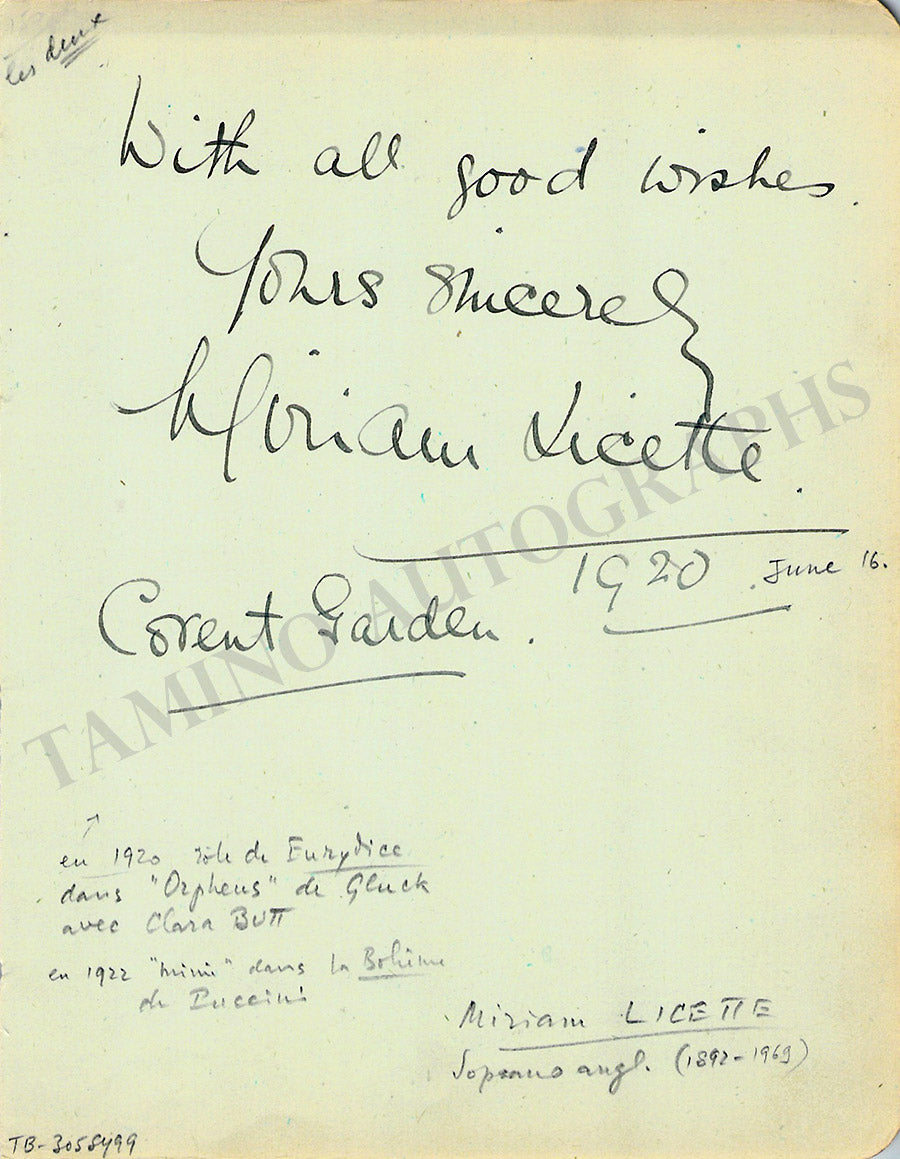 les deux
With all good wishes.
Yours sincerely
Miriam Licette.
1920 . June 16.
Covent Garden.
TAMINO AUTOGRAPHS
en 1920 rôle de Eurydice
dans "Orpheus" de Gluck
avec Clara BUTT
en 1922 "mimi" dans la Bohème
de Puccini
Miriam LICETTE
Soprano angl. (1892-1969)
TB-3058499